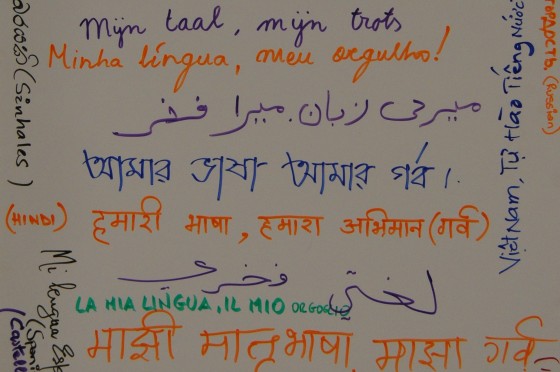 Mijn taal, mijn trots
Minha língua, meu orgulho!
میری زبان. میرا فخر
আমার ভাষা আমার গর্ব।
(HINDI) हमारी भाषा, हमारा अभिमान (गर्व)
لغتي فخري
LA MIA LINGUA, IL MIO ORGOGLIO
माझी मातृभाषा, माझा गर्व
(Sinhales)
Mi lengua Esp
(Spani
(Castell
Việt Nam, Tự Hào Tiếng Nước
(Russian)